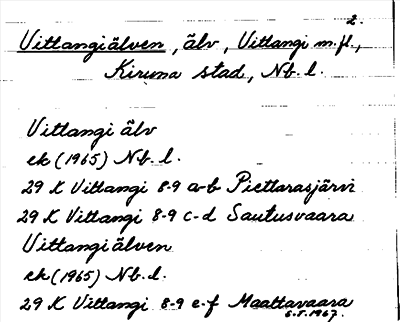 2.
Vittangiälven, älv, Vittangi m.fl.,
Kiruna stad, Nb. l.
Vittangi älv
ek (1965) Nb. l.
29 K Vittangi 8-9 a-b Piettarasjärvi
29 K Vittangi 8-9 c-d Sautusvaara
Vittangiälven
ek (1965) Nb. l.
29 K Vittangi 8-9 e-f Maattavaara
6.5.1967.